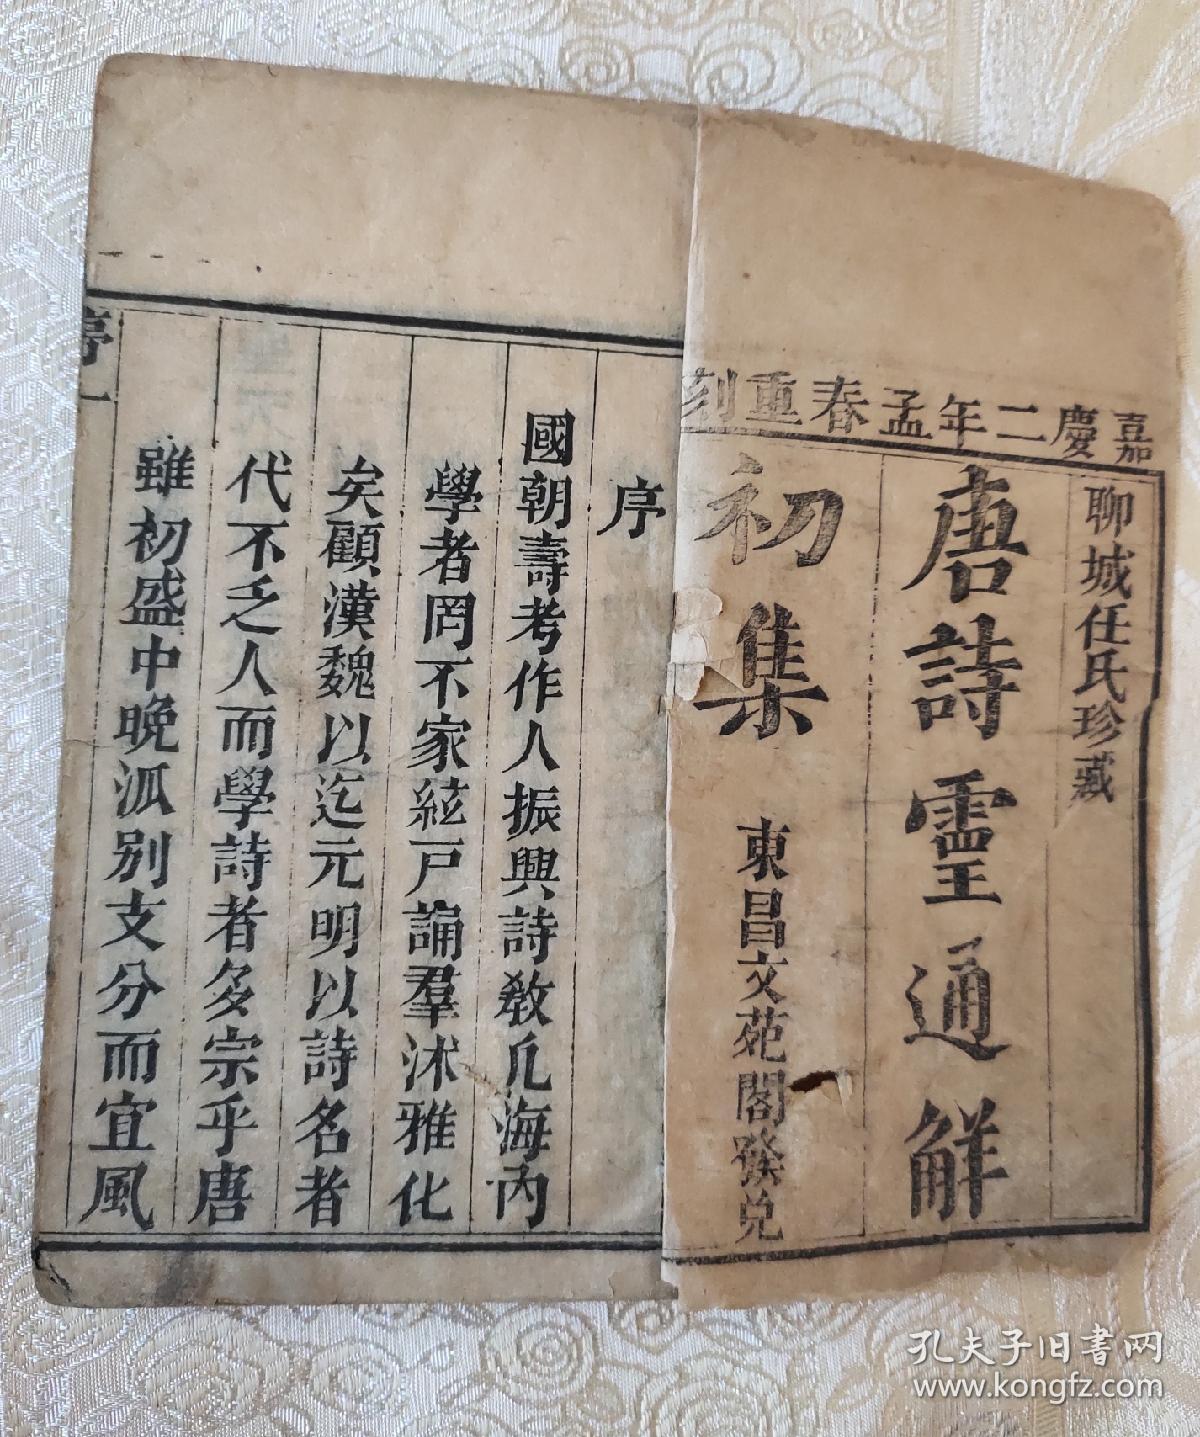 嘉慶二年孟春重刻
聊城任氏珍藏
唐詩靈通解
初集
東昌文苑閣發兌
序
國朝壽考作人振興詩教凡海內
學者罔不家絃戸誦羣沭雅化
矣顧漢魏以迄元明以詩名者
代不乏人而學詩者多宗乎唐
雖初盛中晚派别支分而宜風
序一
孔夫子旧书网
www.kongfz.com